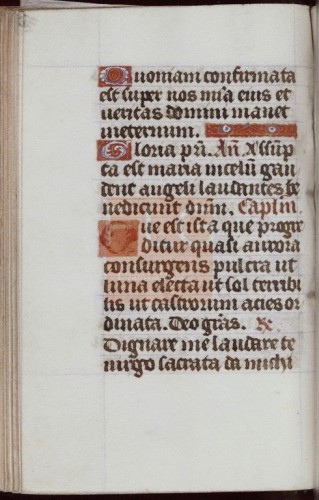 Quoniam confirmata
est super nos mīa eius et
veritas domini manet
ineternum.
Gloria pr̄i. An̄ Assūp
ta est maria in celū gau
dent angeli laudantes be
nedicunt dn̄m. Capl'm
Que est ista que progre
ditur quasi aurora
consurgens pulcra ut
luna electa ut sol terribi
lis ut castrorum acies or
dinata. Deo grās. R.
Dignare me laudare te
virgo sacrata da michi